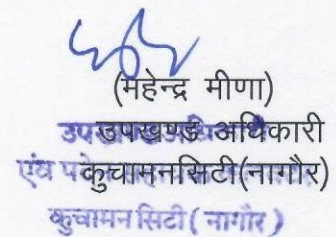 (महेन्द्र मीणा)
उपखण्ड अधिकारी
एंव
कुचामनसिटी(नागौर)
कुचामन सिटी ( नागौर )